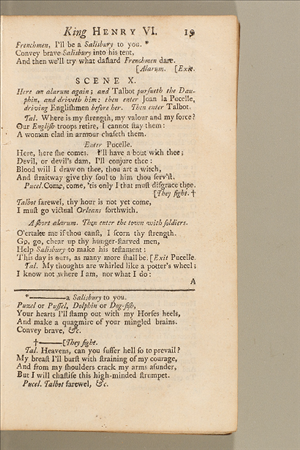 King HENRY VI. 19
Frenchmen, I'll be a Salisbury to you. *
Convey brave Salisbury into his tent,
And then we'll try what dastard Frenchmen dare.
[Alarum. [Exit.
SCENE X.
Here an alarum again; and Talbot pursueth the Dau-
phin, and driveth him: then enter Joan la Pucelle,
driving Englishmen before her. Then enter Talbot.
Tal. Where is my strength, my valour and my force?
Our English troops retire, I cannot stay them:
A woman clad in armour chaseth them.
Enter Pucelle.
Here, here she comes. I'll have a bout with thee;
Devil, or devil's dam, I'll conjure thee:
Blood will I draw on thee, thou art a witch,
And straitway give thy soul to him thou serv'st.
Pucel. Come, come, 'tis only I that must disgrace thee.
[They fight. †
Talbot farewel, thy hour is not yet come,
I must go victual Orleans forthwith.
A short alarum. Then enter the town with soldiers.
O'ertake me if thou canst, I scorn thy strength.
Go, go, chear up thy hunger-starved men,
Help Salisbury to make his testament:
This day is ours, as many more shall be. [Exit Pucelle.
Tal. My thoughts are whirled like a potter's wheel;
I know not where I am, nor what I do:
A
*————a Salisbury to you.
Puzel or Pussel, Dolphin or Dog-fish,
Your hearts I'll stamp out with my Horses heels,
And make a quagmire of your mingled brains.
Convey brave, &c.
†————[They fight.
Tal. Heavens, can you suffer hell so to prevail?
My breast I'll burst with straining of my courage,
And from my shoulders crack my arms asunder,
But I will chastise this high-minded strumpet.
Pucel. Talbot farewel, &c.